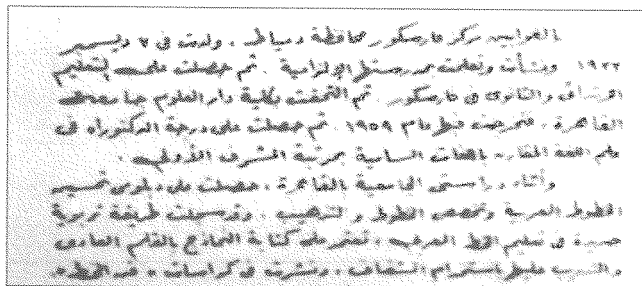 مركز فارسكور محافظة دمياط . ولدت فى ٧ ديسمبر
١٩٢٢ ونشأت وتعلمت بمدرستها الإلزامية . ثم حصلت على التعليم
والثانوى فى فارسكور . ثم التحقت بكلية دار العلوم جامعة
القاهرة . فتخرجت فيها عام ١٩٥٩ . ثم حصلت على درجة الدكتوراه فى
علم اللغة المقارن باللغات السامية بمرتبة الشرف الأولى .
وأثناء دراستى الجامعية بالقاهرة . حصلت على دبلومى تحسين
الخطوط العربية وتخصص الخطوط والتذهيب . وقد سجلت طريقة تربوية
جديدة فى تعليم الخط العربى . تعتمد على كتابة النماذج بالقلم العادى
والتدريب عليها باستخدام الشفاف . ونشرت فى كراسات